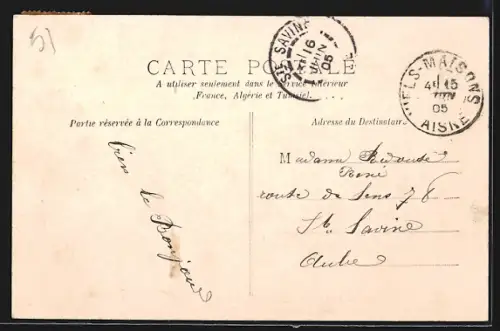 51
STE SAVINE
16
JUIN
05
CARTE POSTALE
A utiliser seulement dans le Service Intérieur
(France, Algérie et Tunisie).
VIELS-MAISONS
4 15
JUIN
05
AISNE
Partie réservée à la Correspondance
Adresse du Destinataire
bien le Bonjour
Madame
René
route de Sens 78
Ste Savine
Aube